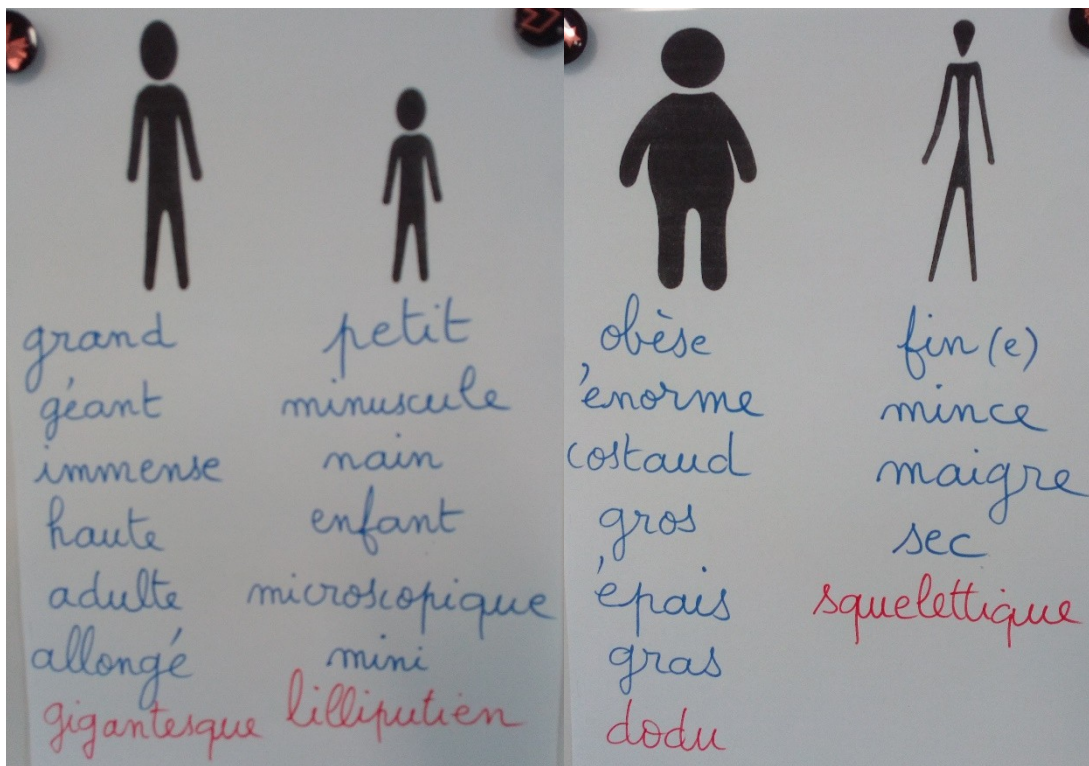 grand
géant
immense
haute
adulte
allongé
gigantesque
petit
minuscule
nain
enfant
microscopique
mini
lilliputien
obèse
énorme
costaud
gros
épais
gras
dodu
fin (e)
mince
maigre
sec
squelettique